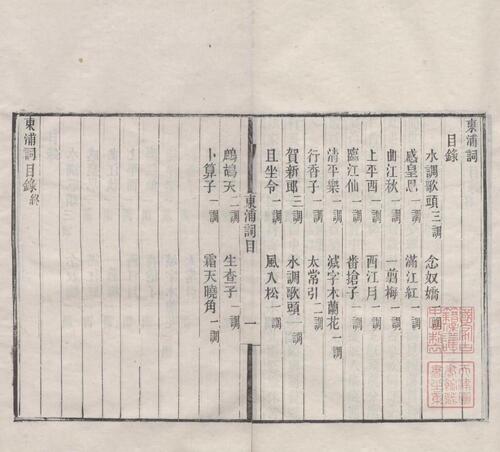 東浦詞
目錄
水調歌頭三調 念奴嬌一調
感皇恩一調 滿江紅一調
曲江秋一調 一翦梅二調
上平西一調 西江月一調
臨江仙一調 番搶子一調
清平樂一調 減字木蘭花一調
行香子一調 太常引二調
賀新郎三調 水調歌頭一調
且坐令一調 風入松一調
東浦詞目 一
鷓鴣天二調 生查子一調
卜算子一調 霜天曉角一調
東浦詞目錄終